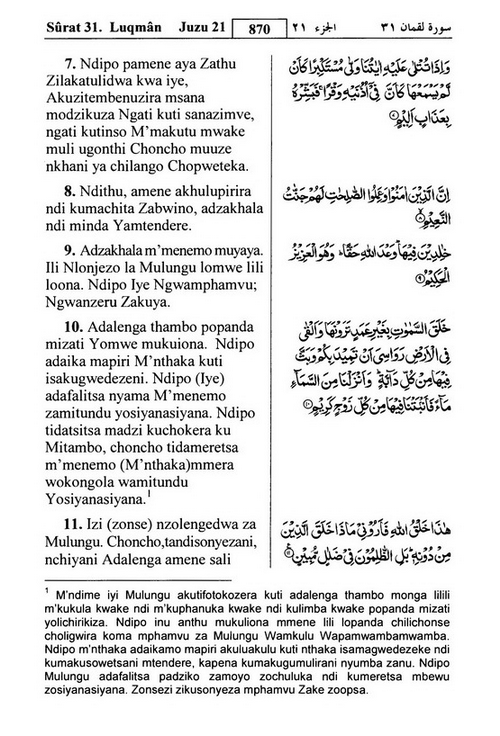 Sûrat 31. Luqmân Juzu 21 870 الجزء ٢١ سورة لقمان ٣١
7. Ndipo pamene aya Zathu
Zilakatulidwa kwa iye,
Akuzitembenuzira msana
modzikuza Ngati kuti sanazimve,
ngati kutinso M’makutu mwake
muli ugonthi Choncho muuze
nkhani ya chilango Chopweteka.
وَإِذَا تُتْلَىٰ عَلَيْهِ ءَايَٰتُنَا وَلَّىٰ مُسْتَكْبِرًا كَأَن
لَّمْ يَسْمَعْهَا كَأَنَّ فِىٓ أُذُنَيْهِ وَقْرًا ۖ فَبَشِّرْهُ
بِعَذَابٍ أَلِيمٍ ٧
8. Ndithu, amene akhulupirira
ndi kumachita Zabwino, adzakhala
ndi minda Yamtendere.
إِنَّ ٱلَّذِينَ ءَامَنُوا۟ وَعَمِلُوا۟ ٱلصَّٰلِحَٰتِ لَهُمْ جَنَّٰتُ
ٱلنَّعِيمِ ٨
9. Adzakhala m’menemo muyaya.
Ili Nlonjezo la Mulungu lomwe lili
loona. Ndipo Iye Ngwamphamvu;
Ngwanzeru Zakuya.
خَٰلِدِينَ فِيهَا ۖ وَعْدَ ٱللَّهِ حَقًّا ۚ وَهُوَ ٱلْعَزِيزُ
ٱلْحَكِيمُ ٩
10. Adalenga thambo popanda
mizati Yomwe mukuiona. Ndipo
adaika mapiri M’nthaka kuti
isakugwedezeni. Ndipo (Iye)
adafalitsa nyama M’menemo
zamitundu yosiyanasiyana. Ndipo
tidatsitsa madzi kuchokera ku
Mitambo, choncho tidameretsa
m’menemo (M’nthaka)mmera
wokongola wamitundu
Yosiyanasiyana.¹
خَلَقَ ٱلسَّمَٰوَٰتِ بِغَيْرِ عَمَدٍ تَرَوْنَهَا ۖ وَأَلْقَىٰ
فِى ٱلْأَرْضِ رَوَٰسِىَ أَن تَمِيدَ بِكُمْ وَبَثَّ
فِيهَا مِن كُلِّ دَآبَّةٍ ۚ وَأَنزَلْنَا مِنَ ٱلسَّمَآءِ
مَآءً فَأَنۢبَتْنَا فِيهَا مِن كُلِّ زَوْجٍ كَرِيمٍ ١٠
11. Izi (zonse) nzolengedwa za
Mulungu. Choncho,tandisonyezani,
nchiyani Adalenga amene sali
هَٰذَا خَلْقُ ٱللَّهِ فَأَرُونِى مَاذَا خَلَقَ ٱلَّذِينَ
مِن دُونِهِۦ ۚ بَلِ ٱلظَّٰلِمُونَ فِى ضَلَٰلٍ مُّبِينٍ ١١
¹ M’ndime iyi Mulungu akutifotokozera kuti adalenga thambo monga lilili
m’kukula kwake ndi m’kuphanuka kwake ndi kulimba kwake popanda mizati
yolichirikiza. Ndipo inu anthu mukuliona mmene lili lopanda chilichonse
choligwira koma mphamvu za Mulungu Wamkulu Wapamwambamwamba.
Ndipo m’nthaka adaikamo mapiri akuluakulu kuti nthaka isamagwedezeke ndi
kumakusowetsani mtendere, kapena kumakugumulirani nyumba zanu. Ndipo
Mulungu adafalitsa padziko zamoyo zochuluka ndi kumeretsa mbewu
zosiyanasiyana. Zonsezi zikusonyeza mphamvu Zake zoopsa.